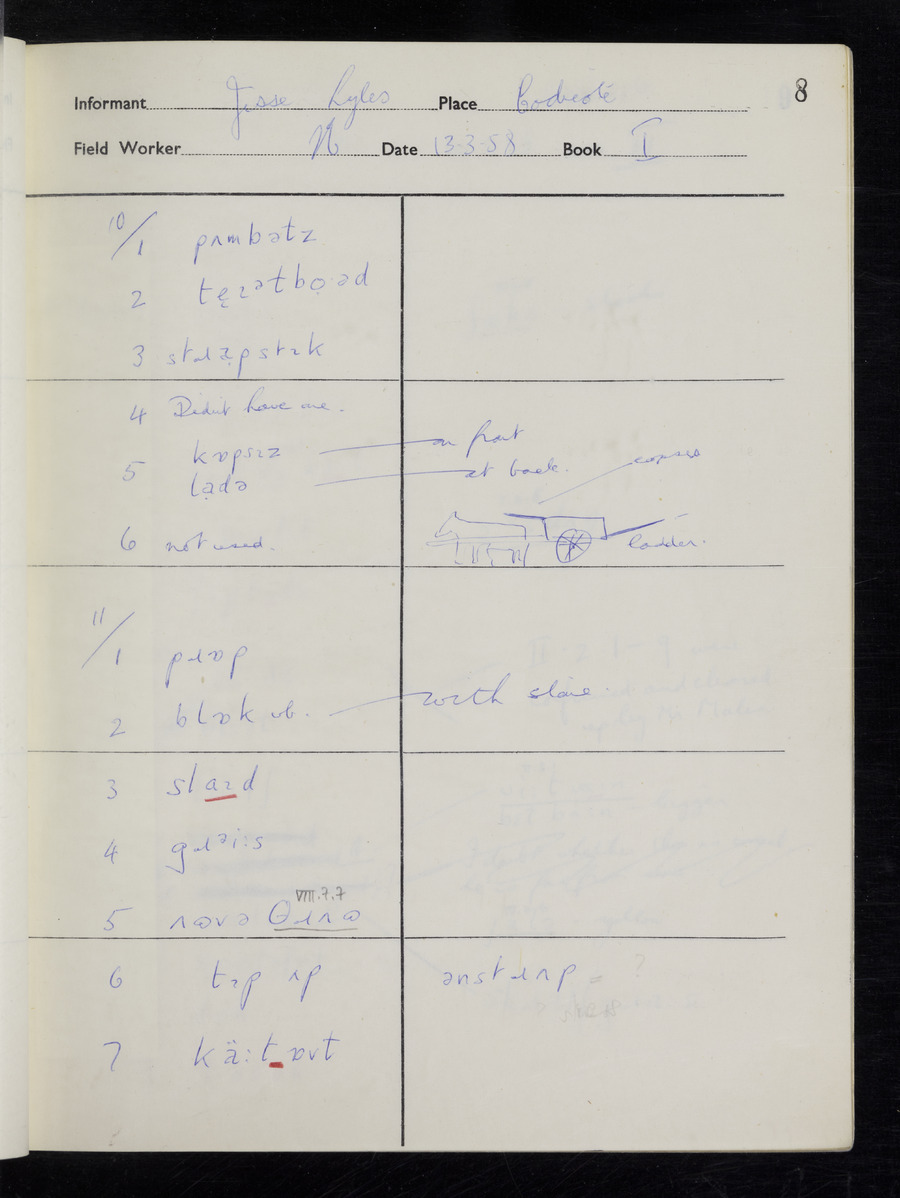 8
Informant Jesse Lyles Place Bodicote
Field Worker N Date 13-3-58 Book I
10/1 pʌmbətz
2 tɛɪətbọ·əd
3 stɹapstɪk
4 Didn't have one.
5 kɒpsɪz on front
lạdə at back. copses
6 not used. ladder.
11/1 pɹɒp
2 blɒk vb. with stone.
3 slaɪd
4 gɹəi:s
VIII.7.7
5 ʌʊvə θɹʌʊ
6 tɪp ʌp ənstɹʌp = ?
7 kä:t ɒvt